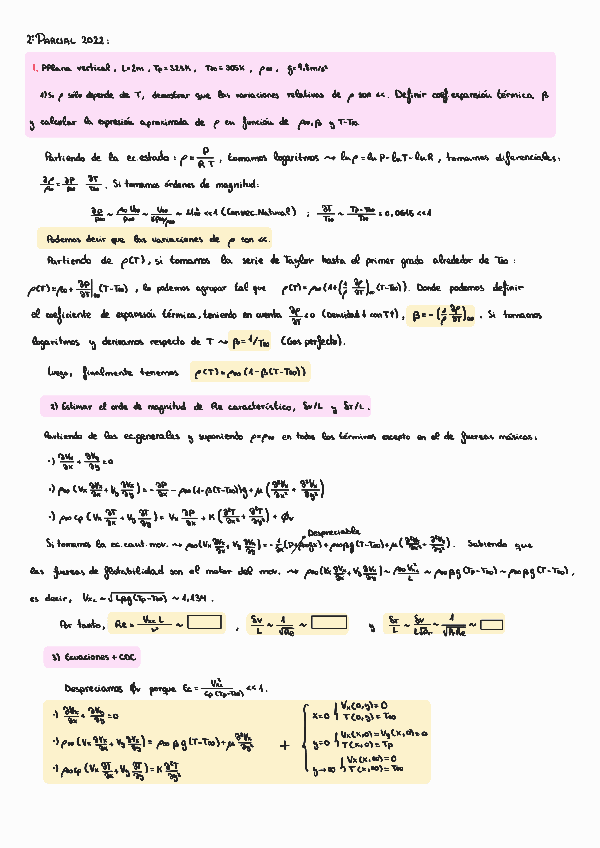 2º PARCIAL 2022:
1. PPlana vertical, L=2m, Tp=323K, T∞=305K, ρ∞, g=9,8m/s²
1) Si ρ sólo depende de T, demostrar que las variaciones relativas de ρ son <<. Definir coef expansión térmica β
y calcular la expresión aproximada de ρ en función de ρ∞, β y T-T∞.
Partiendo de la ec.estado: ρ = P/(R T), tomamos logaritmos ⇝ lnρ = lnP - lnT - lnR, tomamos diferenciales:
∂ρ/ρ∞ = ∂P/P∞ ∂T/T∞. Si tomamos órdenes de magnitud:
<<1 (Convec. Natural) ; ∂T/T∞ ~ (Tp-T∞)/T∞ = 0,0615 <<1
Podemos decir que las variaciones de ρ son <<.
Partiendo de ρ(T), si tomamos la serie de Taylor hasta el primer grado alrededor de T∞:
ρ(T) = ρ∞ + ∂ρ/∂T|∞ (T-T∞), lo podemos agrupar tal que ρ(T) = ρ∞ (1+(1/ρ ∂ρ/∂T)∞ (T-T∞)). Donde podemos definir
el coeficiente de expansión térmica, teniendo en cuenta ∂ρ/∂T <0 (Densidad↓ con T↑), β = -(1/ρ ∂ρ/∂T)∞. Si tomamos
logaritmos y derivamos respecto de T ⇝ β = 1/T∞ (Gas perfecto).
Luego, finalmente tenemos ρ(T) = ρ∞ (1-β(T-T∞))
2) Estimar el orde de magnitud de Re característico, δv/L y δT/L.
Partiendo de las ec.generales y suponiendo ρ=ρ∞ en todos los términos excepto en el de fuerzas másicas:
·) ∂Vx/∂x + ∂Vy/∂y = 0
·) ρ∞ (Vx ∂Vx/∂x + Vy ∂Vx/∂y) = -∂P/∂x - ρ∞(1-β(T-T∞))g + μ (∂²Vx/∂x² + ∂²Vx/∂y²)
·) ρ∞ cp (Vx ∂T/∂x + Vy ∂T/∂y) = Vx ∂P/∂x + K (∂²T/∂x² + ∂²T/∂y²) + ϕv
Despreciable
Si tomamos la ec.cant.mov. ⇝ ρ∞(Vx ∂Vx/∂x + Vy ∂Vx/∂y) = -∂/∂x (P+ρ∞gx) + ρ∞βg(T-T∞) + μ(∂²Vx/∂x² + ∂²Vx/∂y²). Sabiendo que
las fuerzas de flotabilidad son el motor del mov. ⇝ ρ∞ (Vx ∂Vx/∂x + Vy ∂Vx/∂y) ~ ρ∞ Vxc²/L ~ ρ∞ β g (Tp-T∞) ~ ρ∞ β g (T-T∞),
es decir, Vxc ~ √(Lβg(Tp-T∞)) ~ 1,134.
Por tanto, Re = Vxc L/ν ~ , δv/L ~ 1/√Re ~ y δT/L ~
3) Ecuaciones + CDC
Despreciamos ϕv porque Ec = Vxc²/(cp(Tp-T∞)) <<1.
·) ∂Vx/∂x + ∂Vy/∂y = 0
·) ρ∞ (Vx ∂Vx/∂x + Vy ∂Vx/∂y) = ρ∞ β g (T-T∞) + μ ∂²Vx/∂y²
·) ρ∞ cp (Vx ∂T/∂x + Vy ∂T/∂y) = K ∂²T/∂y²
+
x=0 { Vx(0,y) = 0
T(0,y) = T∞
y=0 { Vx(x,0) = Vy(x,0) = 0
T(x,0) = Tp
y→∞ { Vx(x,∞) = 0
T(x,∞) = T∞